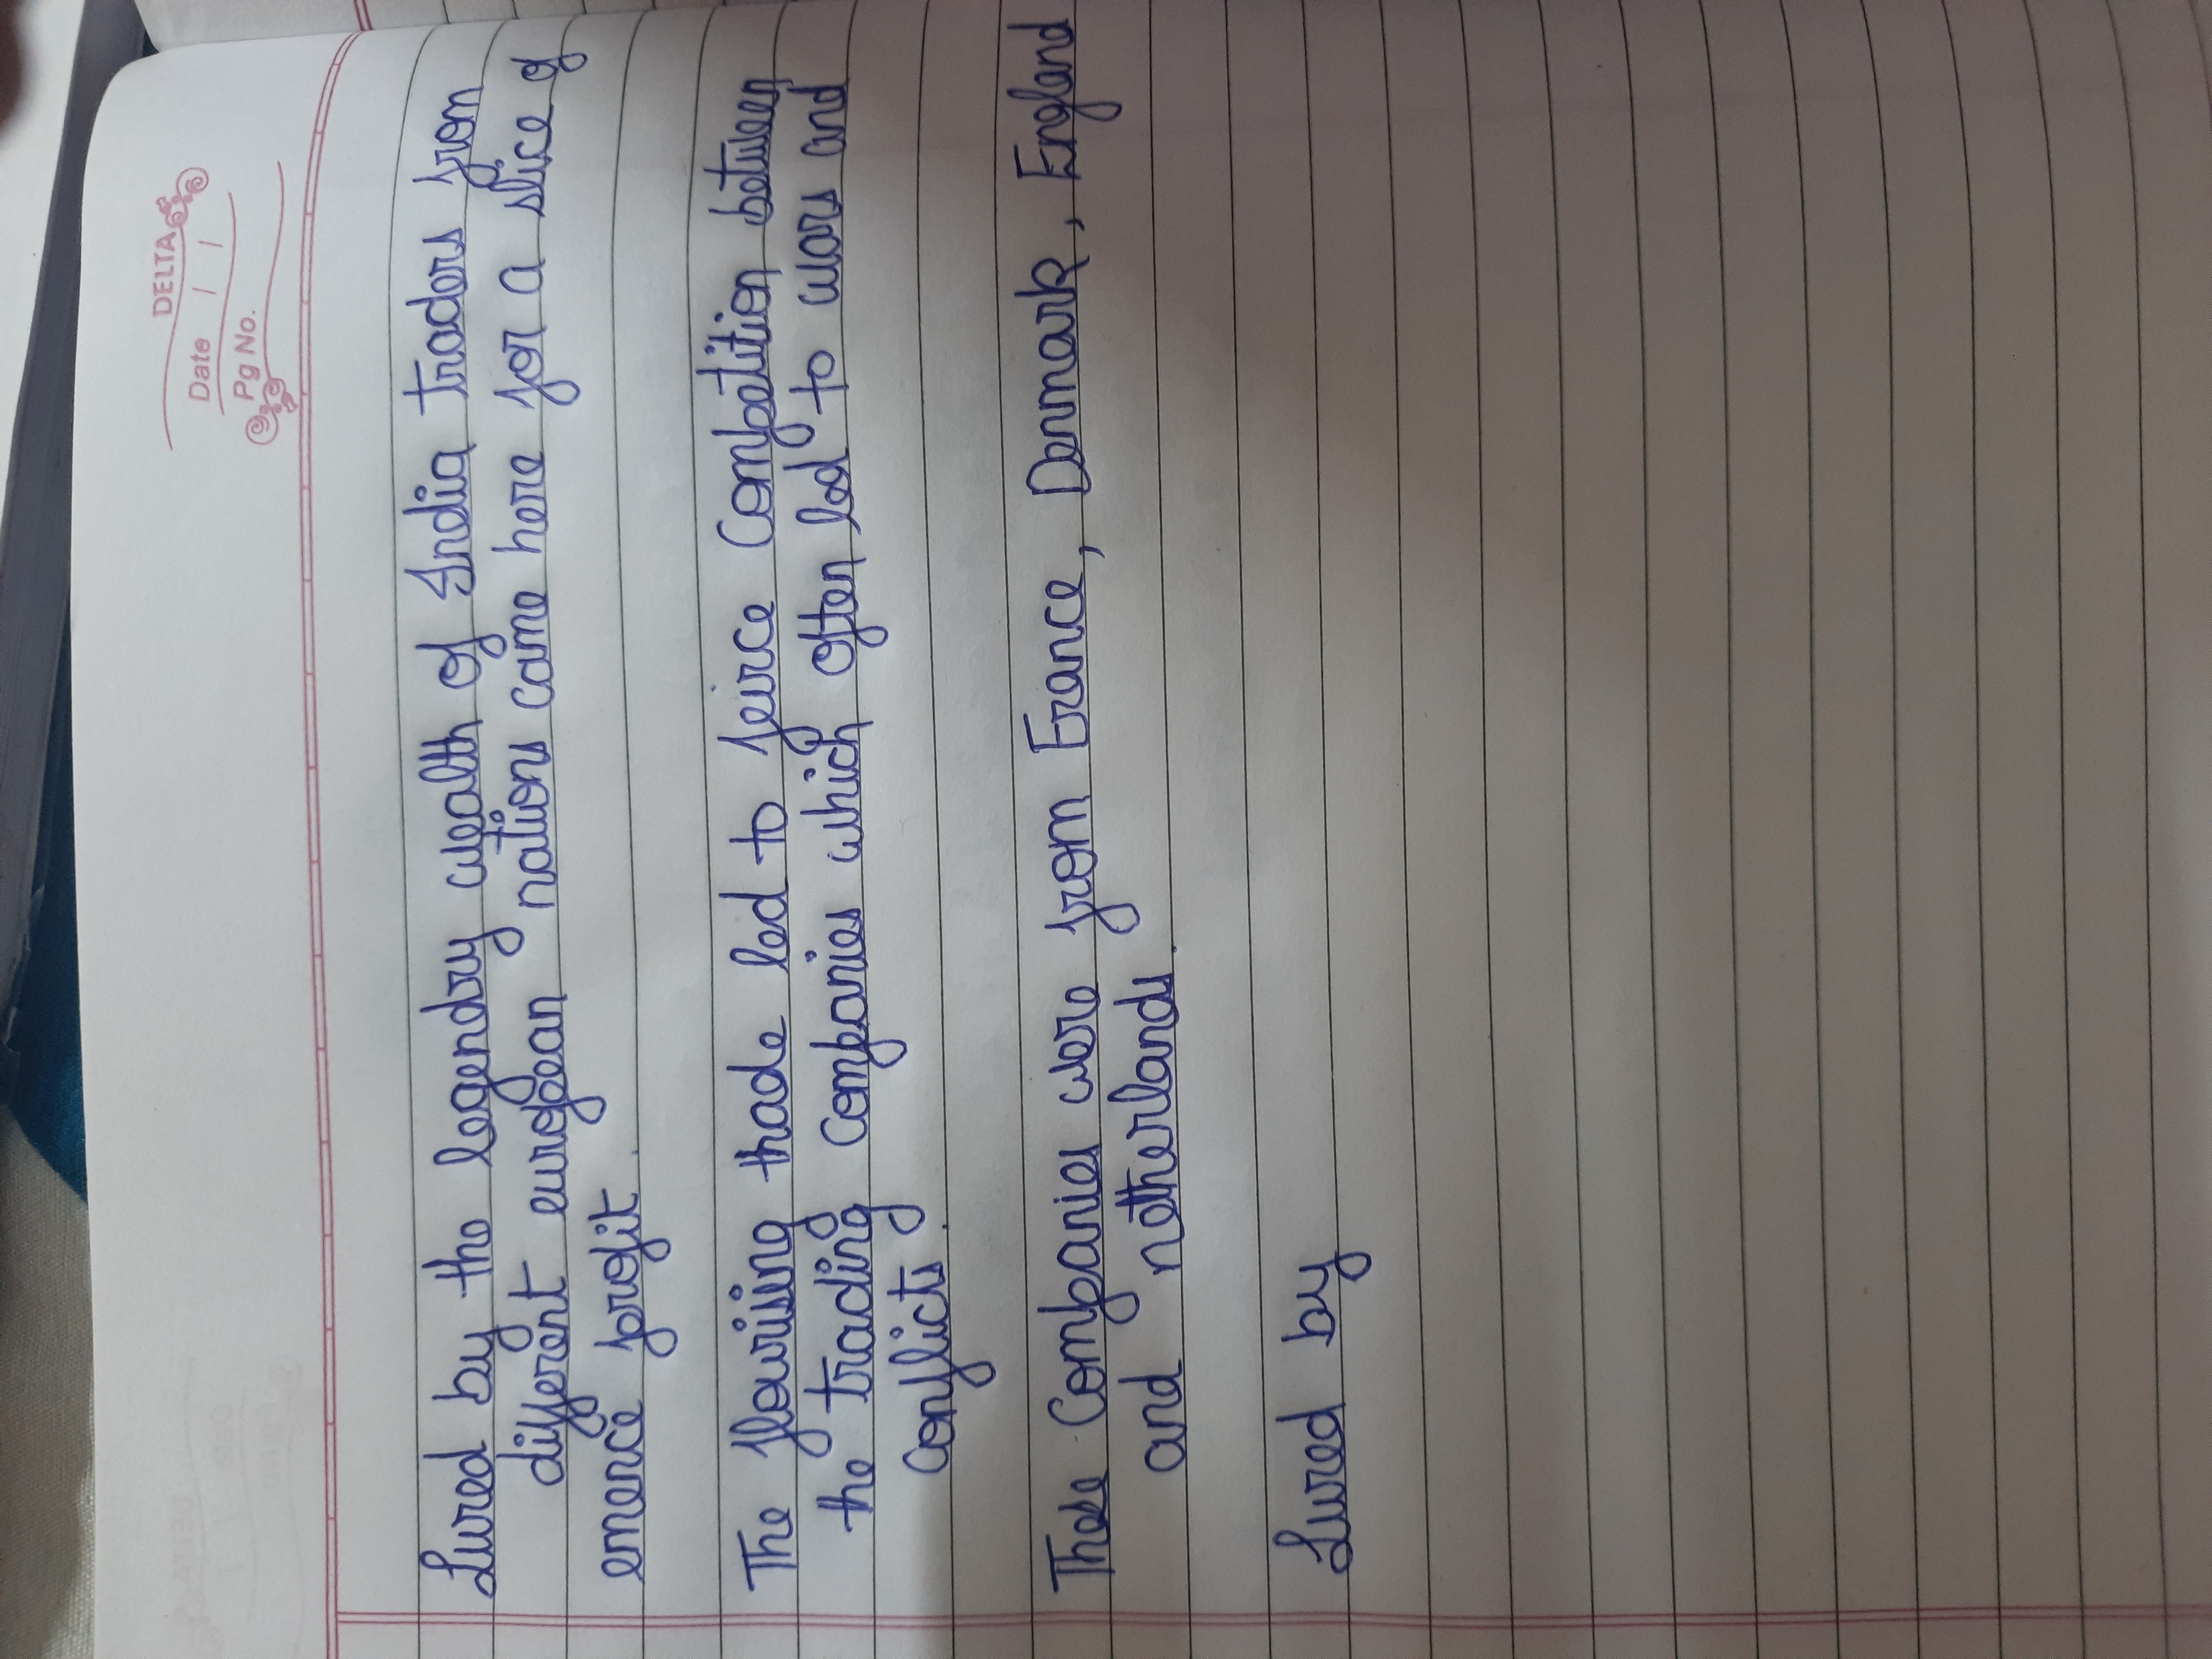 DELTA
Date / /
Pg No.
Lured by the legendry wealth of India traders from
different european nations came here for a slice of
emence profit.
The flowrising trade led to feirce Competition between
the trading Companies which often led to wars and
conflicts.
These Companies were from France, Denmark, England
and netherlands.
Lured by